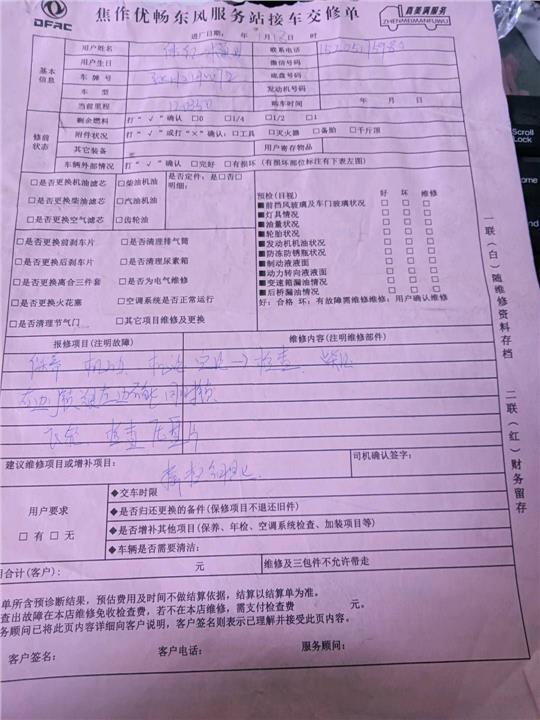 DFAC
焦作优畅东风服务站接车交修单
真美满服务
ZHENMEIMANFUWU
进厂日期: 年 月 日 时
基本信息
用户姓名 联系电话
用户生日 微信号码
车牌号 底盘号码
车型 发动机号码
当前里程 购车时间 年 月 日
修前状态
剩余燃料 打“√”确认 □0 □1/4 □1/2 □1
附件状况 打“√”或打“×”确认:□工具 □灭火器 □备胎 □千斤顶
其它装备 用户寄存物品
车辆外部情况 打“√”确认 □完好 □有损坏(有损坏部位标注有下表左图)
□是否更换机油滤芯 □柴油机油 是否定件:是□否□
明细:
□是否更换柴油滤芯 □汽油机油
□是否更换空气滤芯 □齿轮油
□是否更换前刹车片 □是否清理排气筒
□是否更换后刹车片 □是否清理尿素箱
□是否更换离合三件套 □是否为电气维修
□是否更换火花塞 □空调系统是否正常运行
□是否清理节气门 □其它项目维修及更换
预检(目视) 好 坏 维修
■前挡风玻璃及车门玻璃状况 □ □ □
■灯具情况 □ □ □
■油量状况 □ □ □
■轮胎状况 □ □ □
■发动机机油状况 □ □ □
■防冻防锈瓶状况 □ □ □
■制动液液面 □ □ □
■动力转向液液面 □ □ □
■变速箱漏油情况 □ □ □
■后桥漏油情况 □ □ □
好:合格 坏:有故障需维修维修:用户确认维修
报修项目(注明故障) 维修内容(注明维修部件)
保养 机油 检查
检查
建议维修项目或增补项目: 司机确认签字:
用户要求
□有 □无
◆交车时限
◆是否归还更换的备件(保修项目不退还旧件)
◆是否增补其他项目(保养、年检、空调系统检查、加装项目等)
◆车辆是否需要清洁:
用合计(客户): 元 维修及三包件不允许带走
单所含预诊断结果,预估费用及时间不做结算依据,结算以结算单为准。
查出故障在本店维修免收检查费,若不在本店维修,需支付检查费 元。
务顾问已将此页内容详细向客户说明,客户签名则表示已理解并接受此页内容。
客户签名: 客户电话: 服务顾问:
一联(白)随维修资料存档
二联(红)财务留存
Scroll
Lock
ome
End